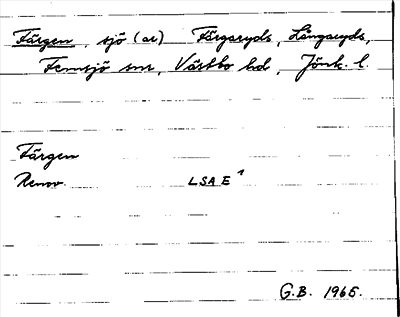 Färgen, sjö (ar) Färgaryds, Långaryds,
Femsjö snr, Västbo hd, Jönk. l.
Färgen
Renov. LSA E¹
G.B. 1965.